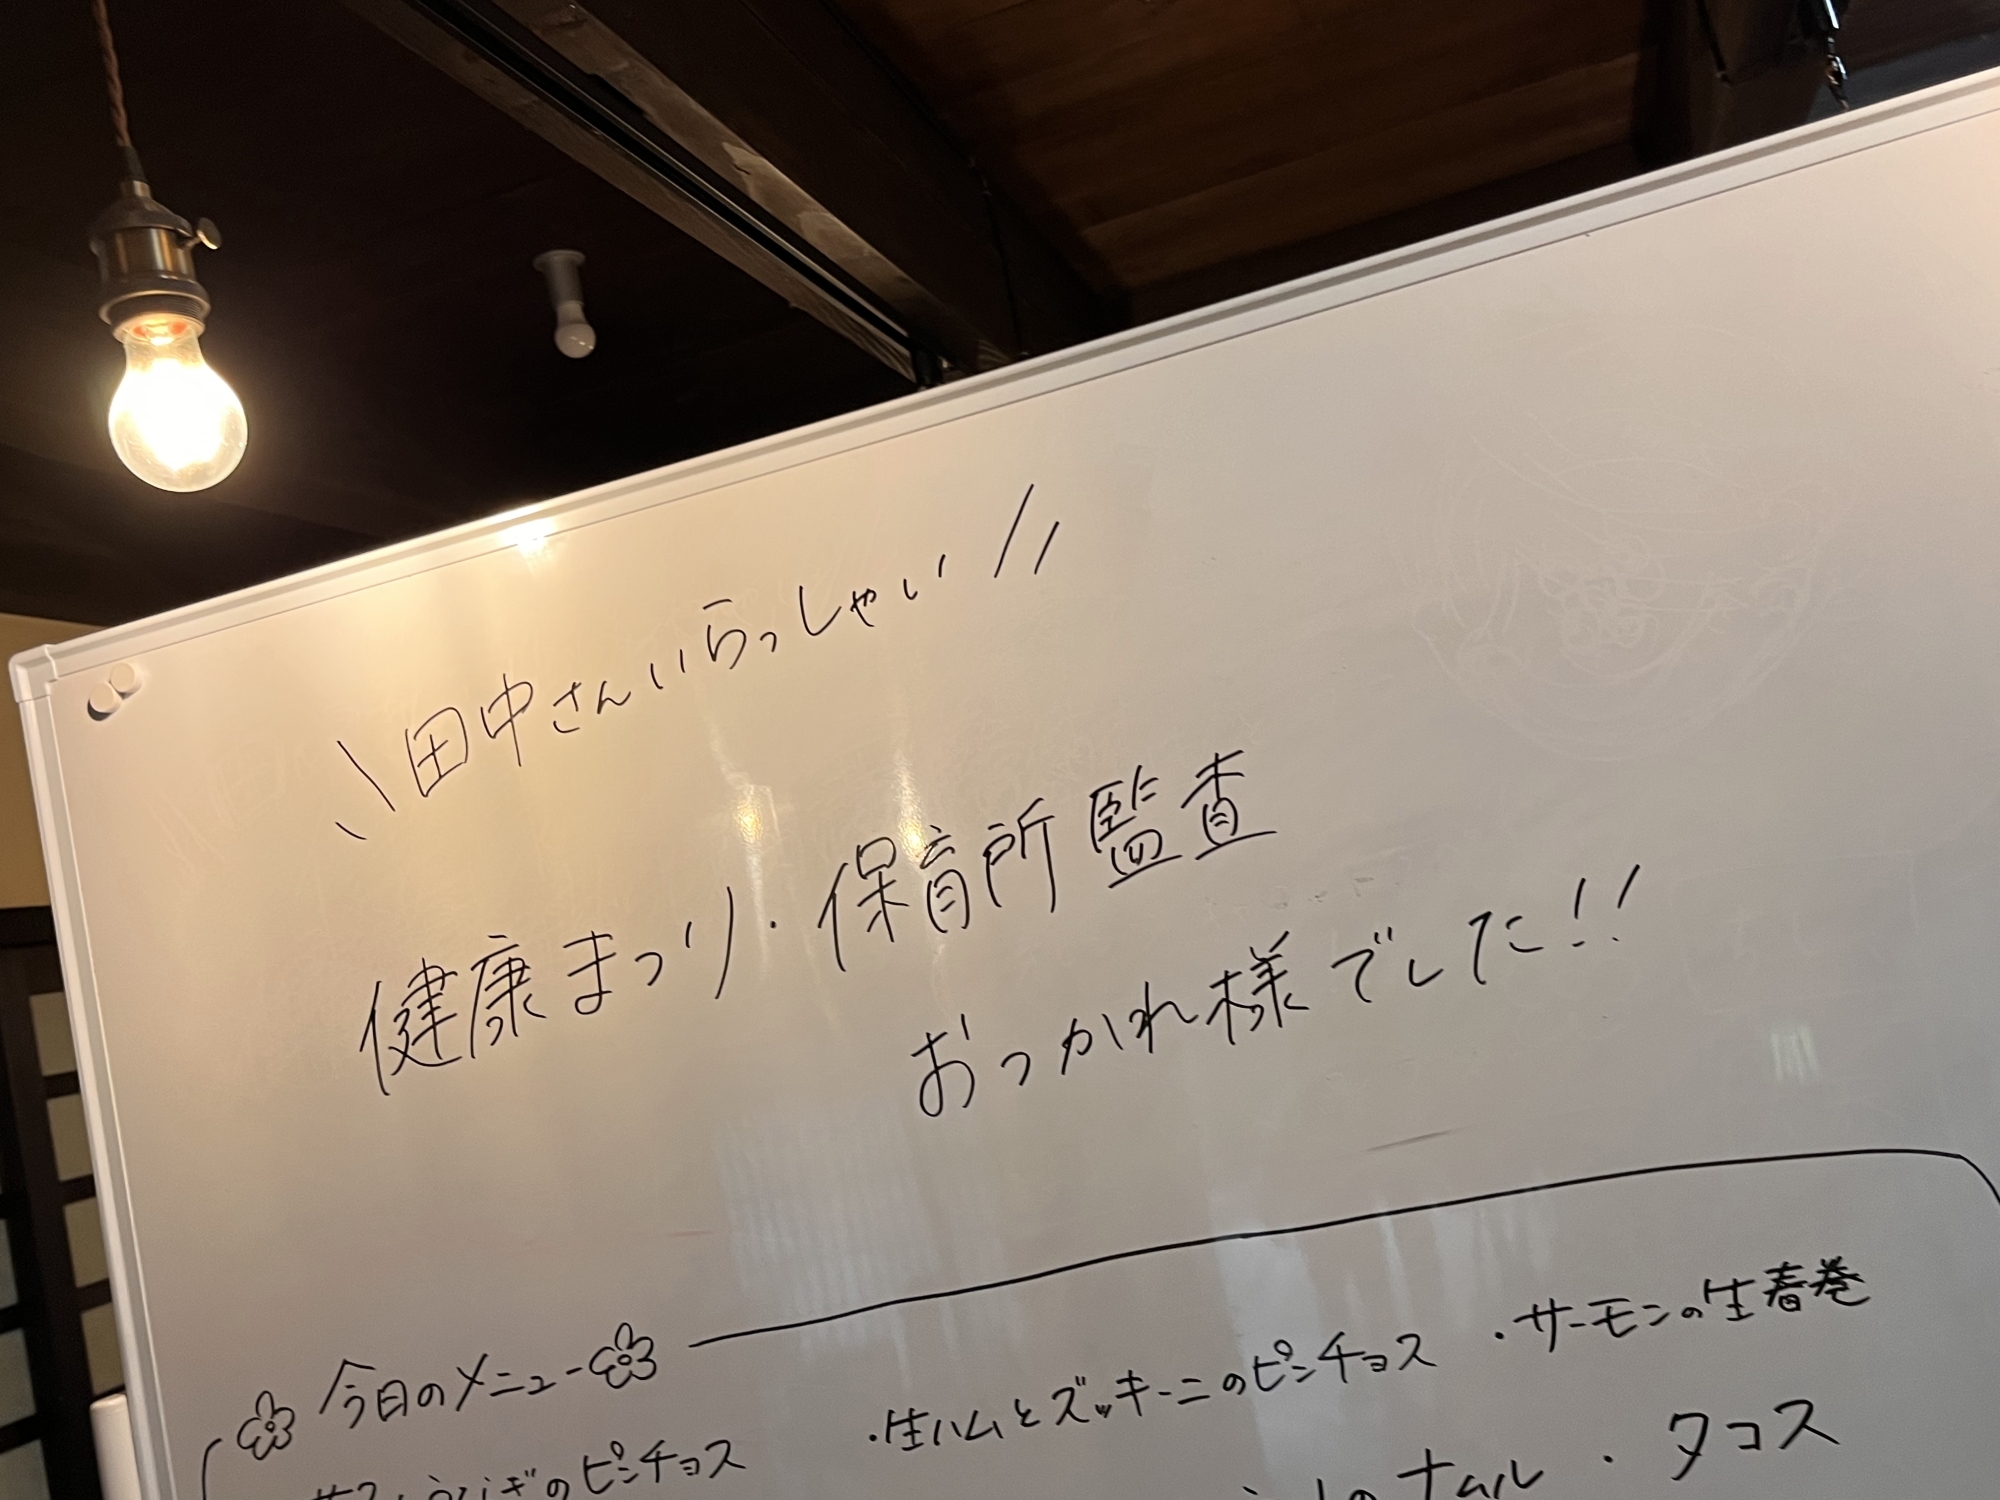 田中さんいらっしゃい
健康まつり・保育所監査
おつかれ様でした!!
今日のメニュー
・生ハムとズッキーニのピンチョス
・サーモンの生春巻
のピンチョス
のナムル
・タコス